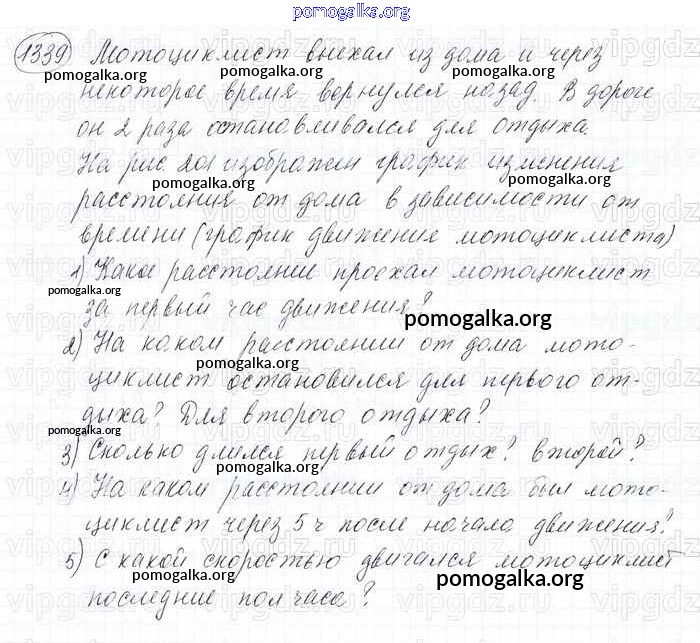 pomogalka.org
1339 Мотоциклист выехал из дома и через
pomogalka.org pomogalka.org pomogalka.org
некоторое время вернулся назад. В дороге
он 2 раза останавливался для отдыха.
На рис. 201 изображен график изменения
pomogalka.org pomogalka.org
расстояния от дома в зависимости от
времени (график движения мотоциклиста)
1) Какое расстояние проехал мотоциклист
pomogalka.org
за первый час движения?
pomogalka.org
2) На каком расстоянии от дома мото-
pomogalka.org
циклист остановился для первого от-
дыха? Для второго отдыха?
pomogalka.org pomogalka.org
3) Сколько длился первый отдых? второй?
pomogalka.org
4) На каком расстоянии от дома был мото-
циклист через 5 ч после начала движения?
5) С какой скоростью двигался мотоциклист
pomogalka.org pomogalka.org
последние полчаса?